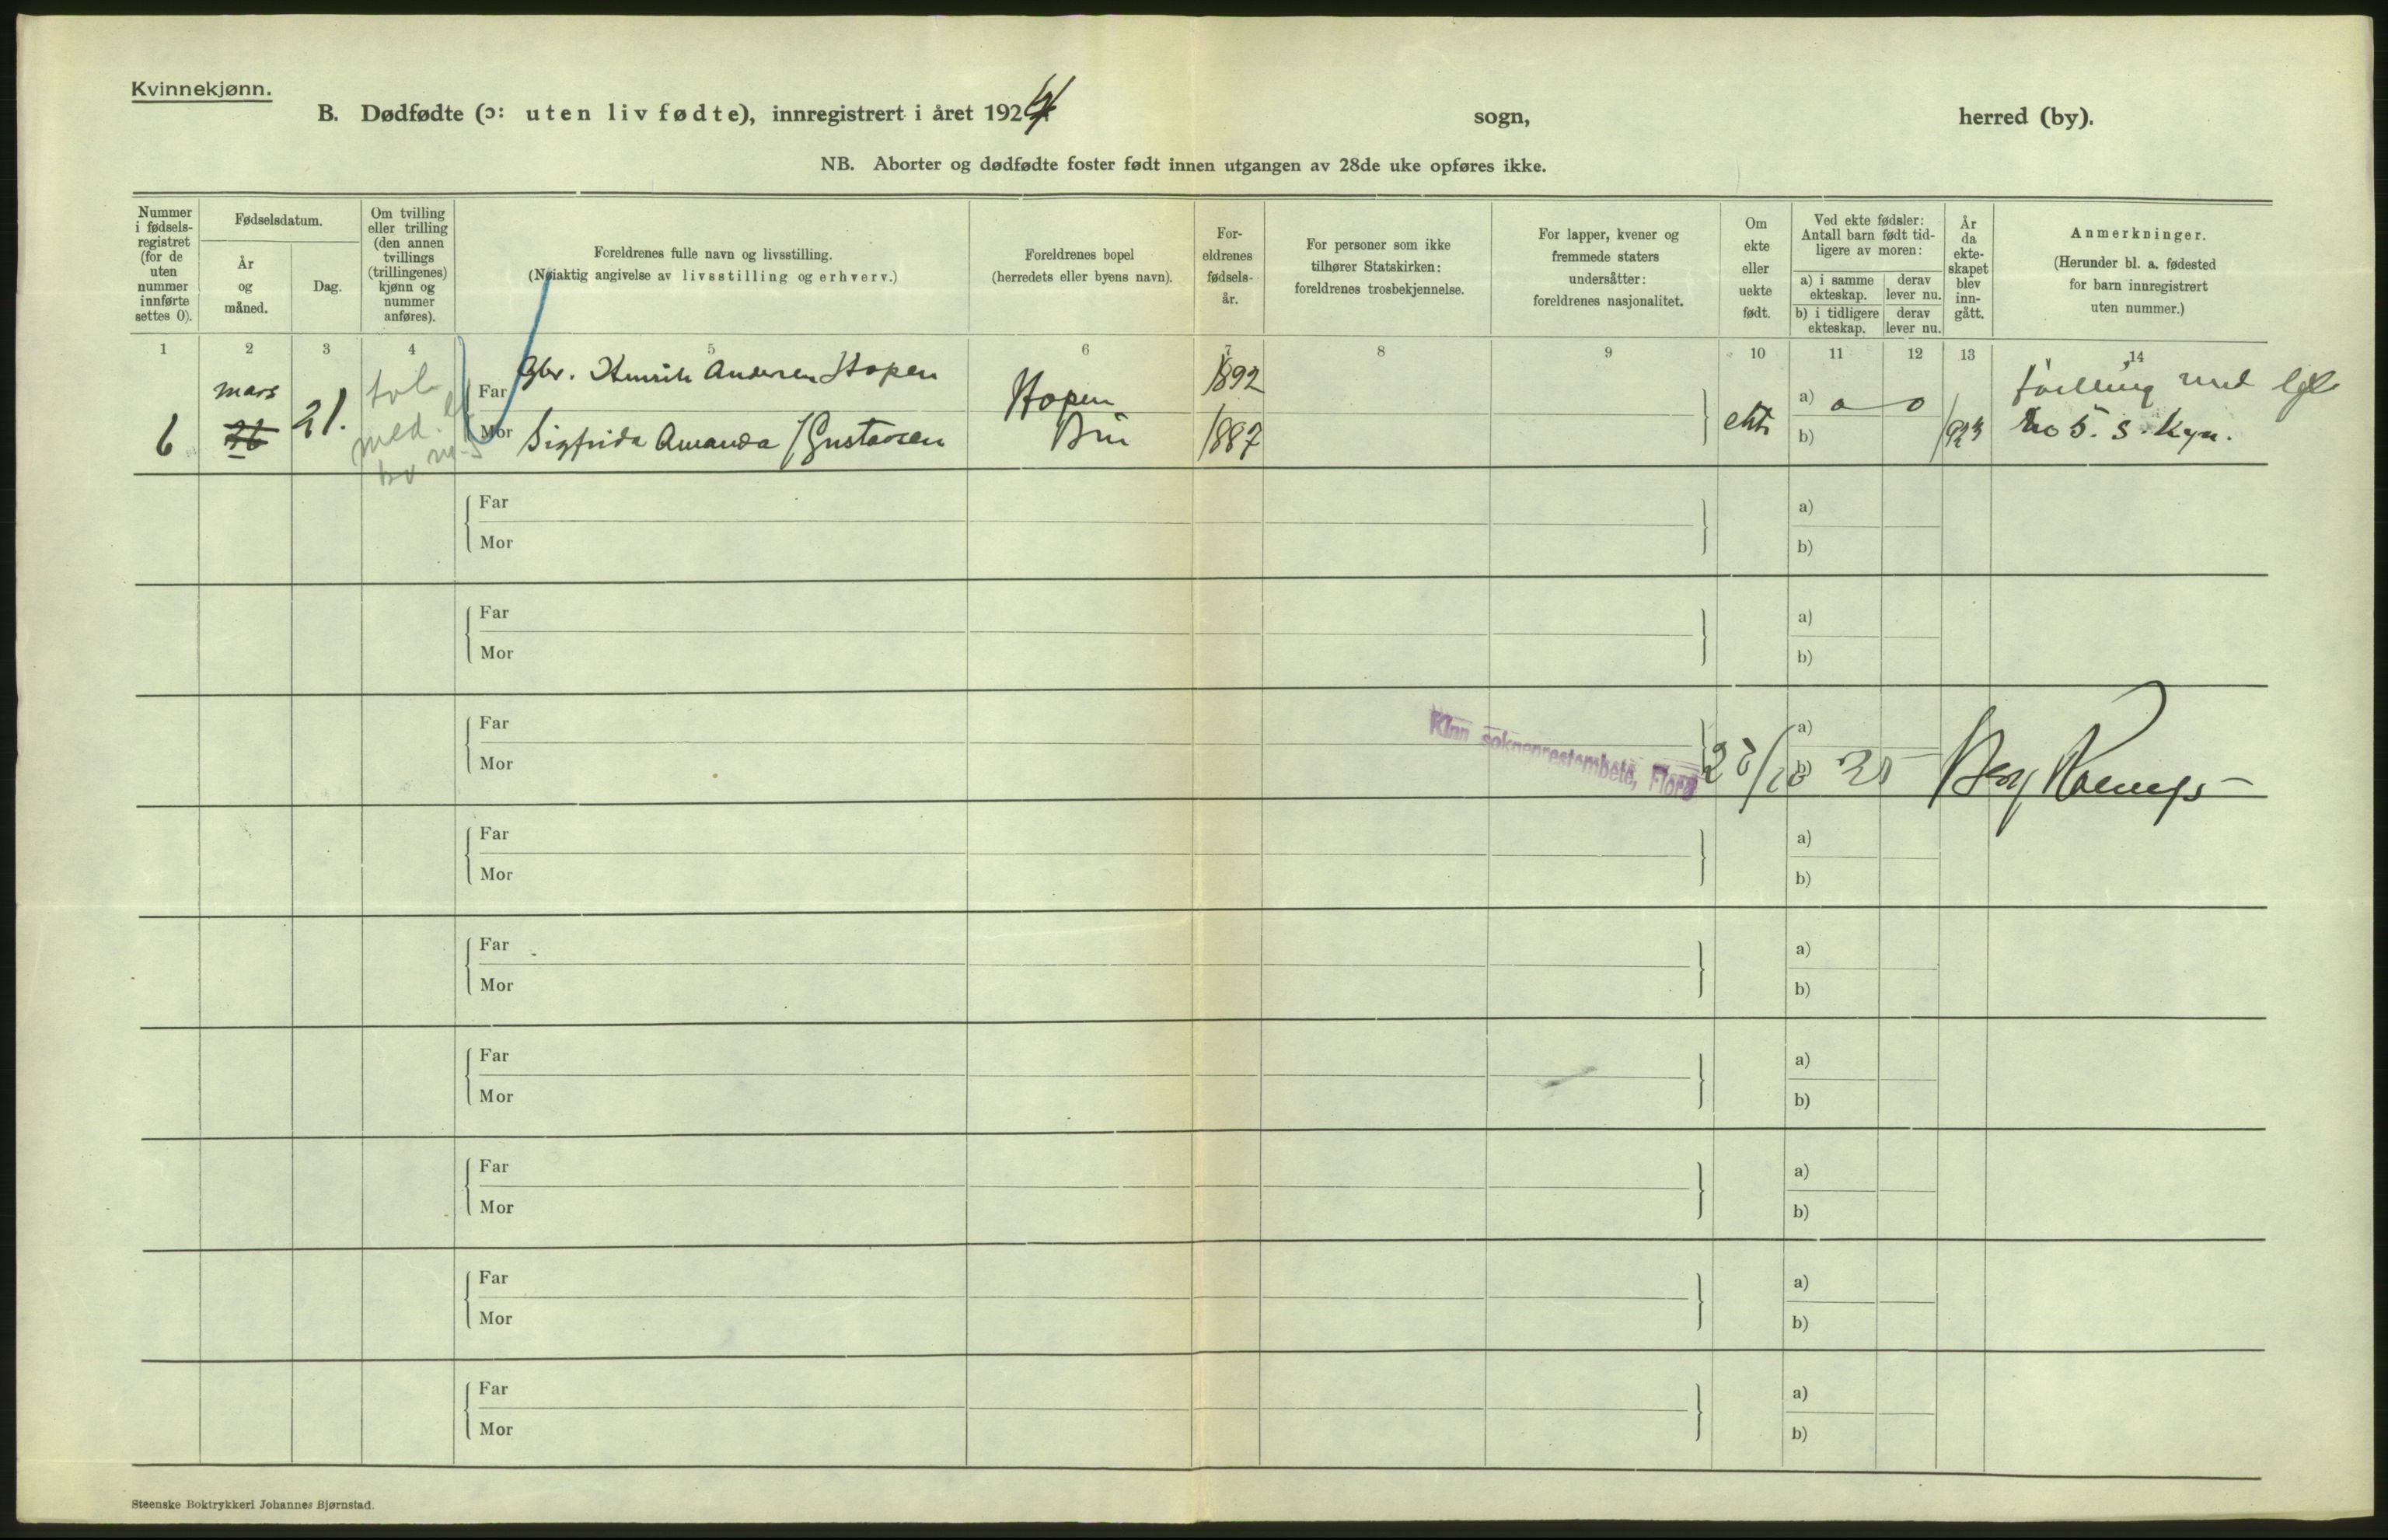 Kvinnekjønn.
B. Dødfødte (ɔ: uten liv fødte), innregistrert i året 1924 sogn, herred (by).
NB. Aborter og dødfødte foster født innen utgangen av 28de uke opføres ikke.
Nummer i fødsels-registret (for de uten nummer innførte settes 0).
Fødselsdatum.
År og måned.
Dag.
Om tvilling eller trilling (den annen tvillings (trillingenes) kjønn og nummer anføres).
Foreldrenes fulle navn og livsstilling.
(Nøiaktig angivelse av livsstilling og erhverv.)
Foreldrenes bopel
(herredets eller byens navn).
For-eldrenes fødsels-år.
For personer som ikke tilhører Statskirken: foreldrenes trosbekjennelse.
For lapper, kvener og fremmede staters undersåtter: foreldrenes nasjonalitet.
Om ekte eller uekte født.
Ved ekte fødsler: Antall barn født tid-ligere av moren:
a) i samme ekteskap.
derav lever nu.
b) i tidligere ekteskap.
derav lever nu.
År da ekte-skapet blev inn-gått.
Anmerkninger.
(Herunder bl. a. fødested for barn innregistrert uten nummer.)
1 2 3 4 5 6 7 8 9 10 11 12 13 14
6 mars 26 21.
tvl. med
Far Gbr. Henrik Andersen Hopen Hopen 1892
Mor Sigfrida Amanda f Gustavsen Bru 1887
ekte a) 0 0 b) 1923
tvilling med
no 5. s. kjn.
Far a)
Mor b)
Far a)
Mor b)
Far a)
Mor b)
Kinn sokneprestembete, Florø
Far a)
Mor b)
Far a)
Mor b)
Far a)
Mor b)
Far a)
Mor b)
Far a)
Mor b)
Far a)
Mor b)
Steenske Boktrykkeri Johannes Bjørnstad.